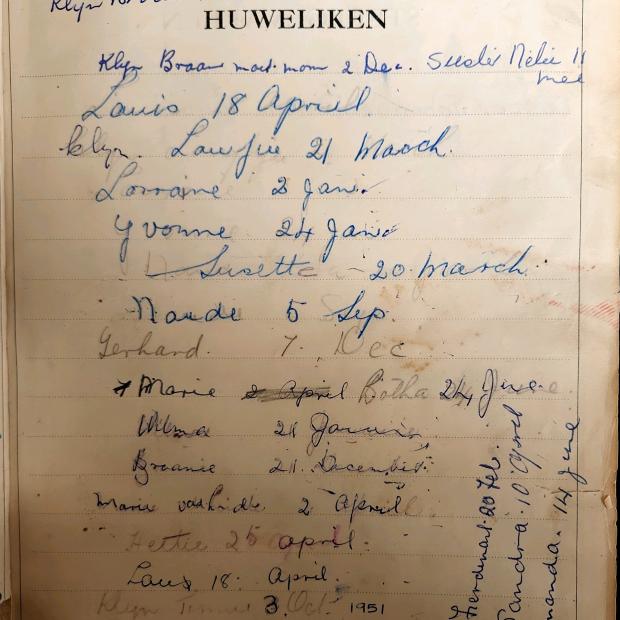 Klyn
HUWELIKEN
Klyn Braam mom 2 Dec. Suster Nelie 11
mee
Louis 18 April.
klyn. Lourju 21 March.
Lorraine 2 Jan.
Yvonne 24 Jan.
Susette - 20 March.
Naude 5 Sep.
Gerhard. 7. Dec
Marie 2 April Botha 24 June
Wilma 21
Braanie 21. December.
Marie 2 April
Hettie 25 april.
Louis 18. April.
Klyn 3. Oct. 1951
Ferdinart. 20 Feb.
Sandra. 10 April
14 June